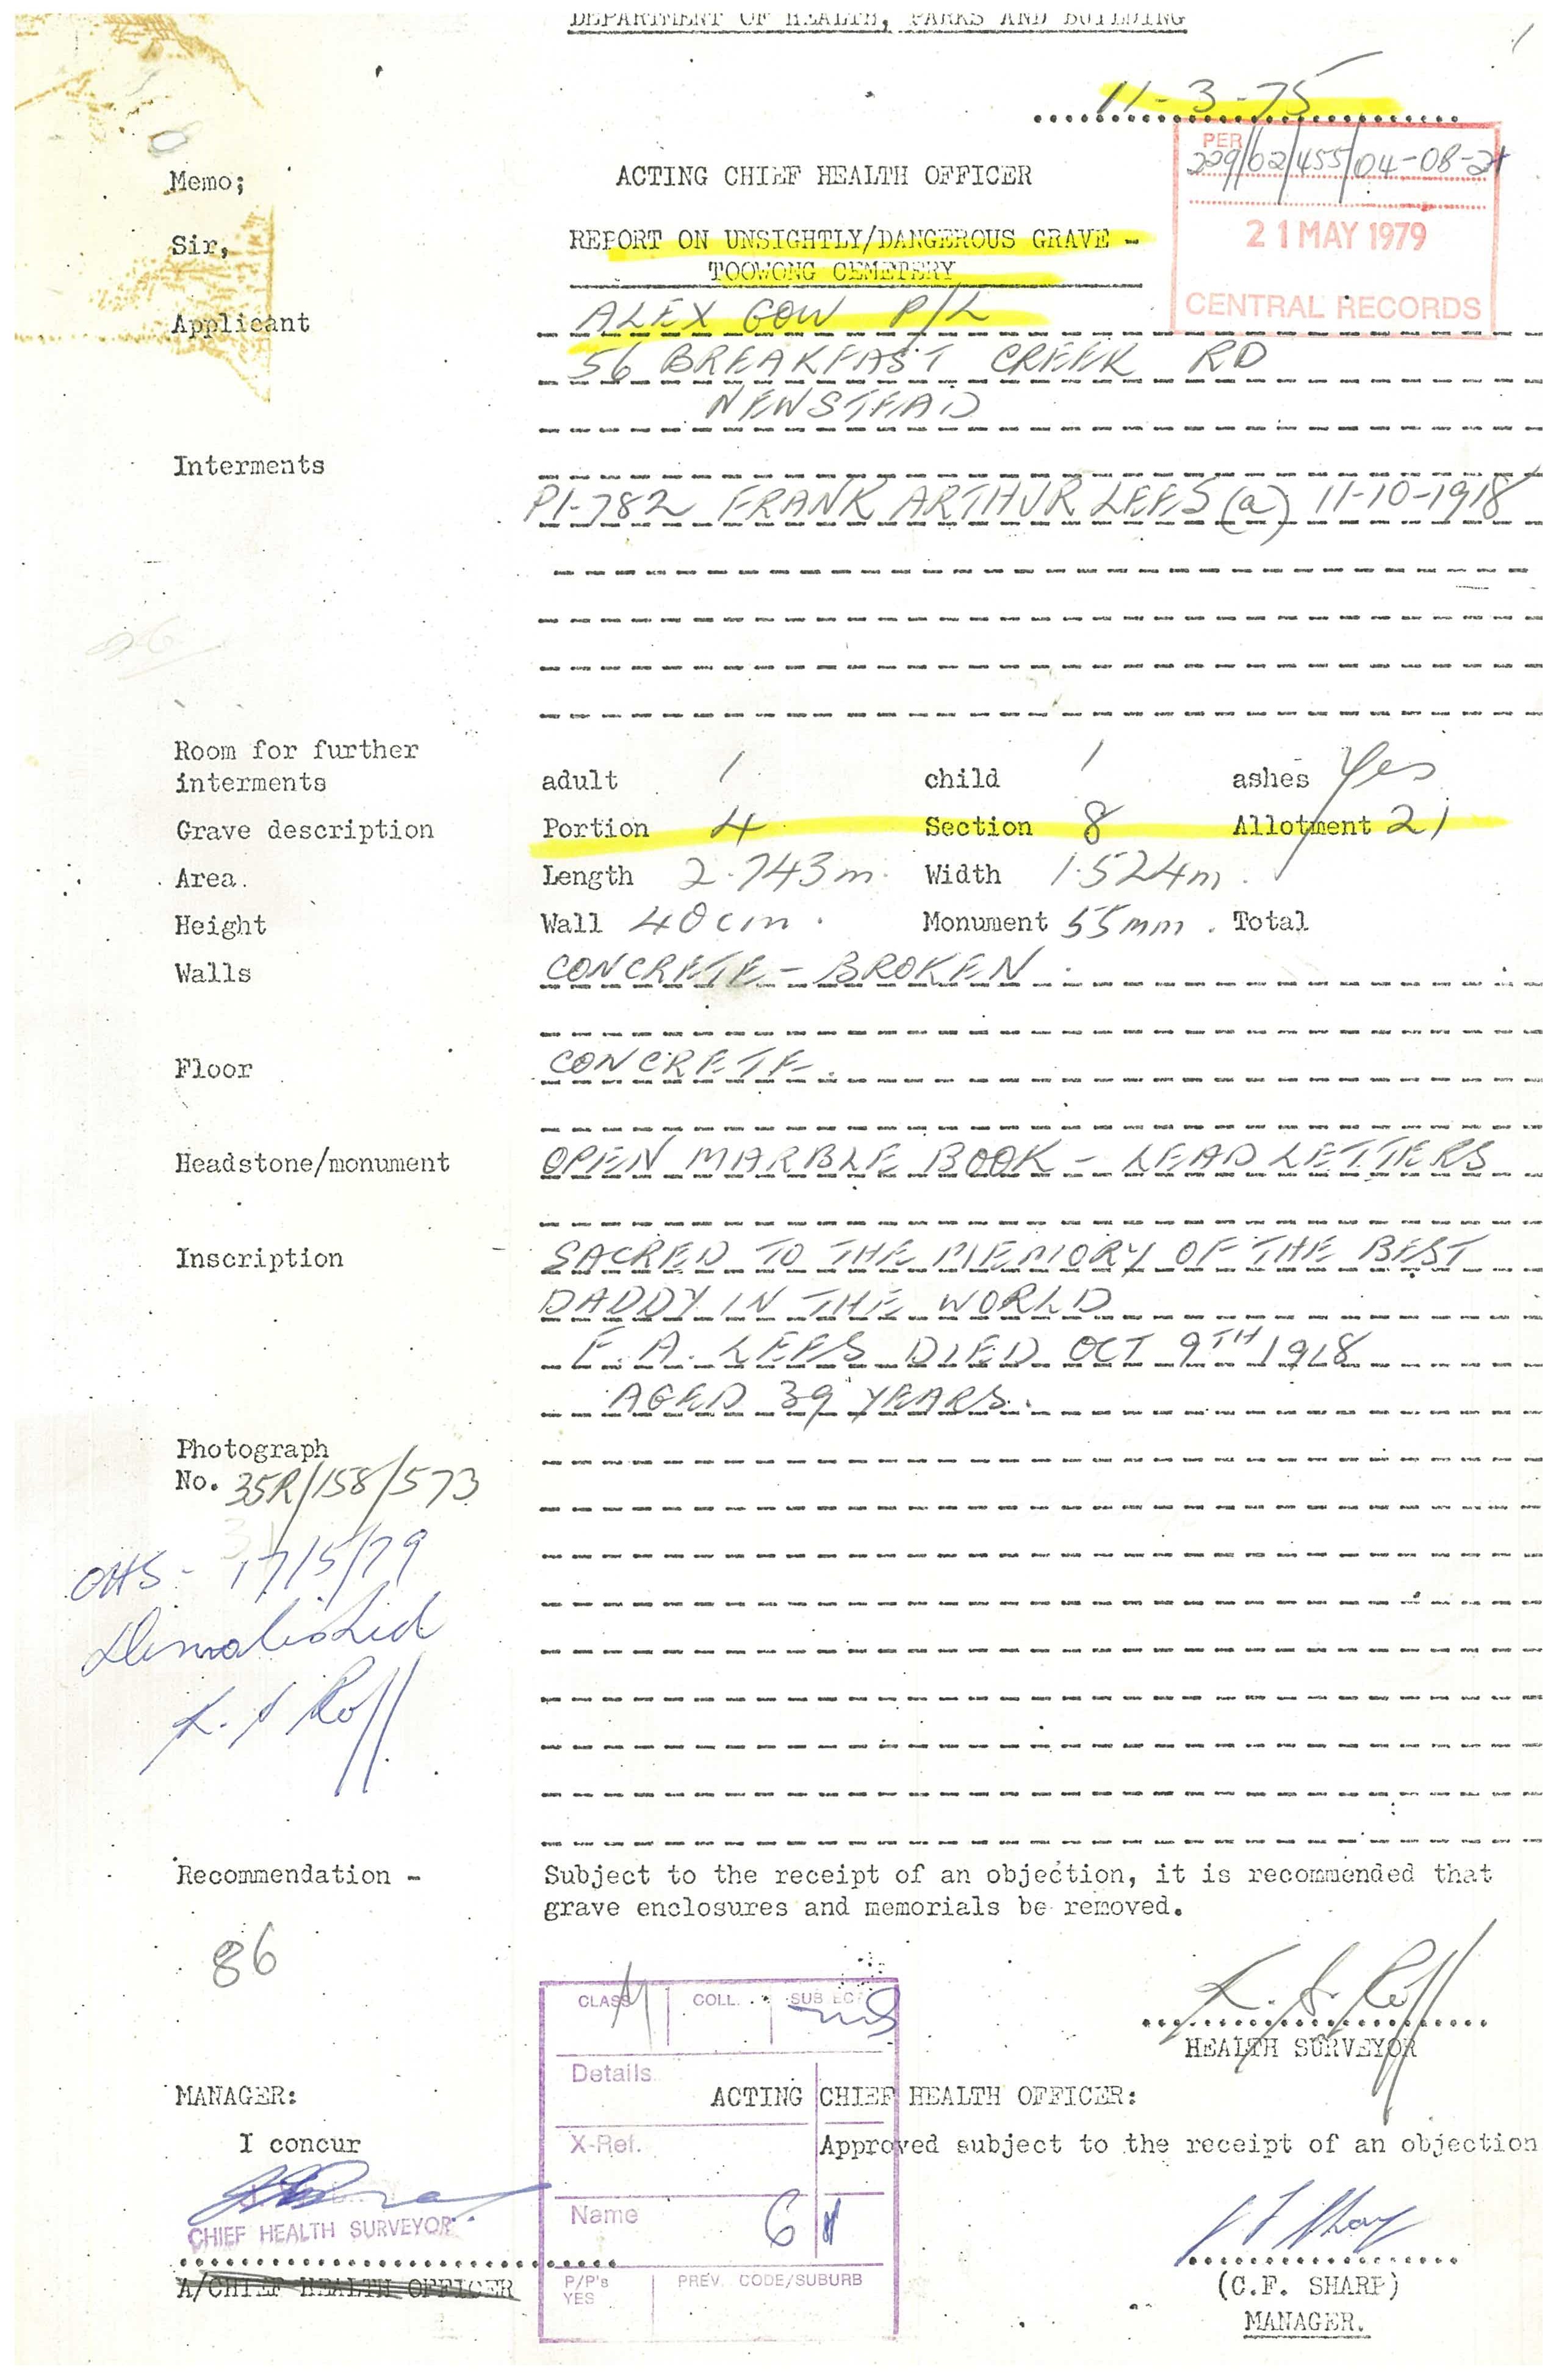 DEPARTMENT OF HEALTH, PARKS AND BUILDING
11-3-75
PER
229/02/455/04-08-21
21 MAY 1979
CENTRAL RECORDS
Memo; ACTING CHIEF HEALTH OFFICER
Sir, REPORT ON UNSIGHTLY/DANGEROUS GRAVE -
TOOWONG CEMETERY
Applicant ALEX GOW P/L
56 BREAKFAST CREEK RD
NEWSTEAD
Interments
P1-782 FRANK ARTHUR LEES (a) 11-10-1918
Room for further
interments adult 1 child 1 ashes Yes
Grave description Portion 4 Section 8 Allotment 21
Area. Length 2.743m. Width 1.524m.
Height Wall 40cm. Monument 55mm. Total
Walls CONCRETE - BROKEN.
Floor CONCRETE.
Headstone/monument OPEN MARBLE BOOK - LEAD LETTERS
Inscription SACRED TO THE MEMORY OF THE BEST
DADDY IN THE WORLD
F. A. LEES DIED OCT 9TH 1918
AGED 39 YEARS.
Photograph
No. 35R/158/573
OHS - 17/5/79
Demolished
K. S Roff
Recommendation - Subject to the receipt of an objection, it is recommended that
grave enclosures and memorials be removed.
86
K. S. Roff
HEALTH SURVEYOR
CLASS COLL. SUBJECT
Details
X-Ref.
Name G
P/P's PREV. CODE/SUBURB
YES
MANAGER: ACTING CHIEF HEALTH OFFICER:
I concur Approved subject to the receipt of an objection
CHIEF HEALTH SURVEYOR
A/CHIEF HEALTH OFFICER
(C.F. SHARP)
MANAGER.